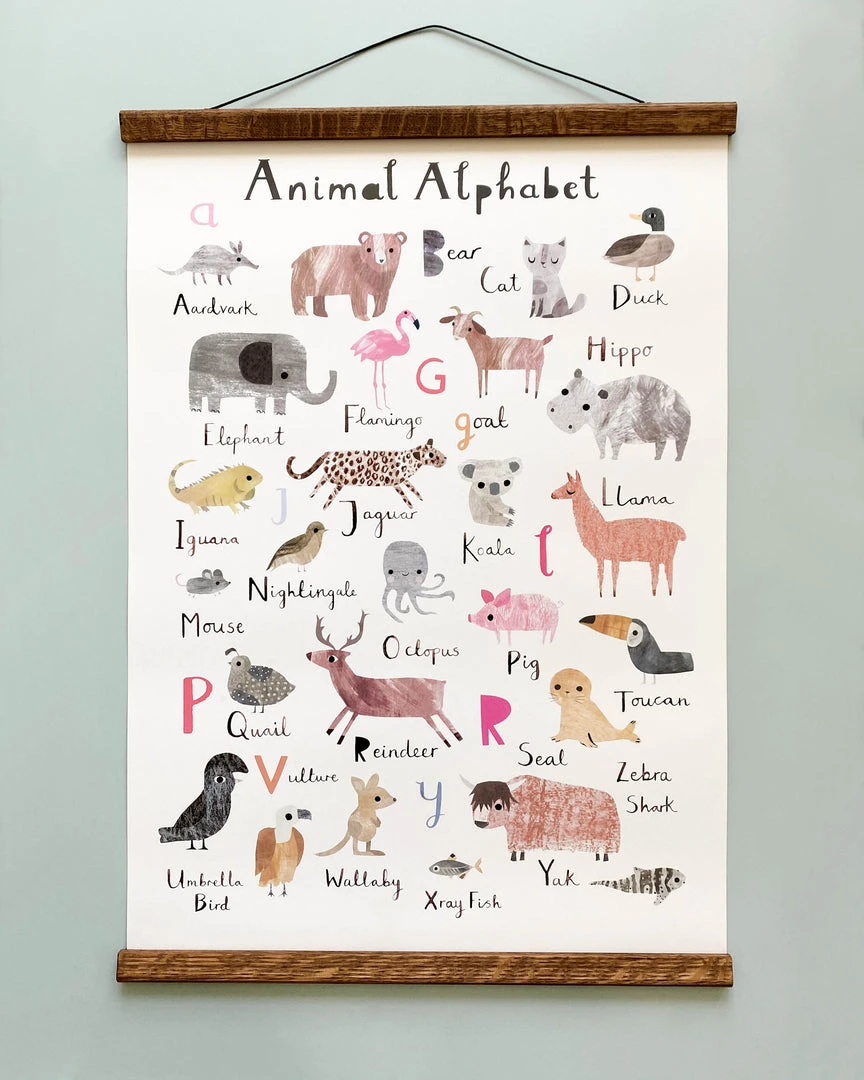 Animal Alphabet
a
Aardvark
Bear
Cat
Duck
Elephant
Flamingo
G
goat
Hippo
Iguana
J
Jaguar
Koala
l
Llama
Nightingale
Mouse
Octopus
Pig
Toucan
P
Quail
Reindeer
R
Seal
Zebra
Shark
Vulture
Umbrella
Bird
Wallaby
y
Xray Fish
Yak